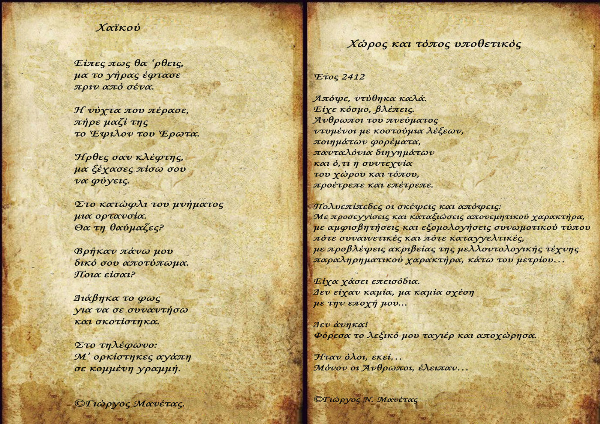 Χαϊκού
Είπες πως θα 'ρθεις,
μα το γήρας έφτασε
πριν από σένα.
Η νύχτα που πέρασε,
πήρε μαζί της
το Έψιλον του Έρωτα.
Ήρθες σαν κλέφτης,
μα ξέχασες πίσω σου
να φύγεις.
Στο κατώφλι του μνήματος
μια ορτανσία.
Θα τη θαύμαζες?
Βρήκαν πάνω μου
δικό σου αποτύπωμα.
Ποια είσαι?
Διάβηκα το φως
για να σε συναντήσω
και σκοτίστηκα.
Στο τηλέφωνο:
Μ' ορκίστηκες αγάπη
σε κομμένη γραμμή.
©Γιώργος Μανέτας.
Χώρος και τόπος υποθετικός
Έτος 2412
Απόψε, ντύθηκα καλά.
Είχε κόσμο, βλέπεις.
Άνθρωποι του πνεύματος
ντυμένοι με κοστούμια λέξεων,
ποιημάτων φορέματα,
πανταλόνια διηγημάτων
και ό,τι η συντεχνία
του χώρου και τόπου,
προέτρεπε και επέτρεπε.
Πολυεπίπεδες οι σκέψεις και απόψεις:
Με προσεγγίσεις και καταξιώσεις απονεμητικού χαρακτήρα,
με αμφισβητήσεις και εξομολογήσεις συνωμοτικού τύπου
πότε συναινετικές και πότε καταγγελτικές,
με προβλέψεις ακριβείας της μελλοντολογικής τέχνης
παραληρηματικού χαρακτήρα, κάτω του μετρίου...
Είχα χάσει επεισόδια.
Δεν είχαν καμία, μα καμία σχέση
με την εποχή μου...
Δεν άνηκα!
Φόρεσα το λεξικό μου ταγιέρ και αποχώρησα.
Ήταν όλοι, εκεί...
Μόνον οι Άνθρωποι, έλειπαν...
©Γιώργος Ν. Μανέτας